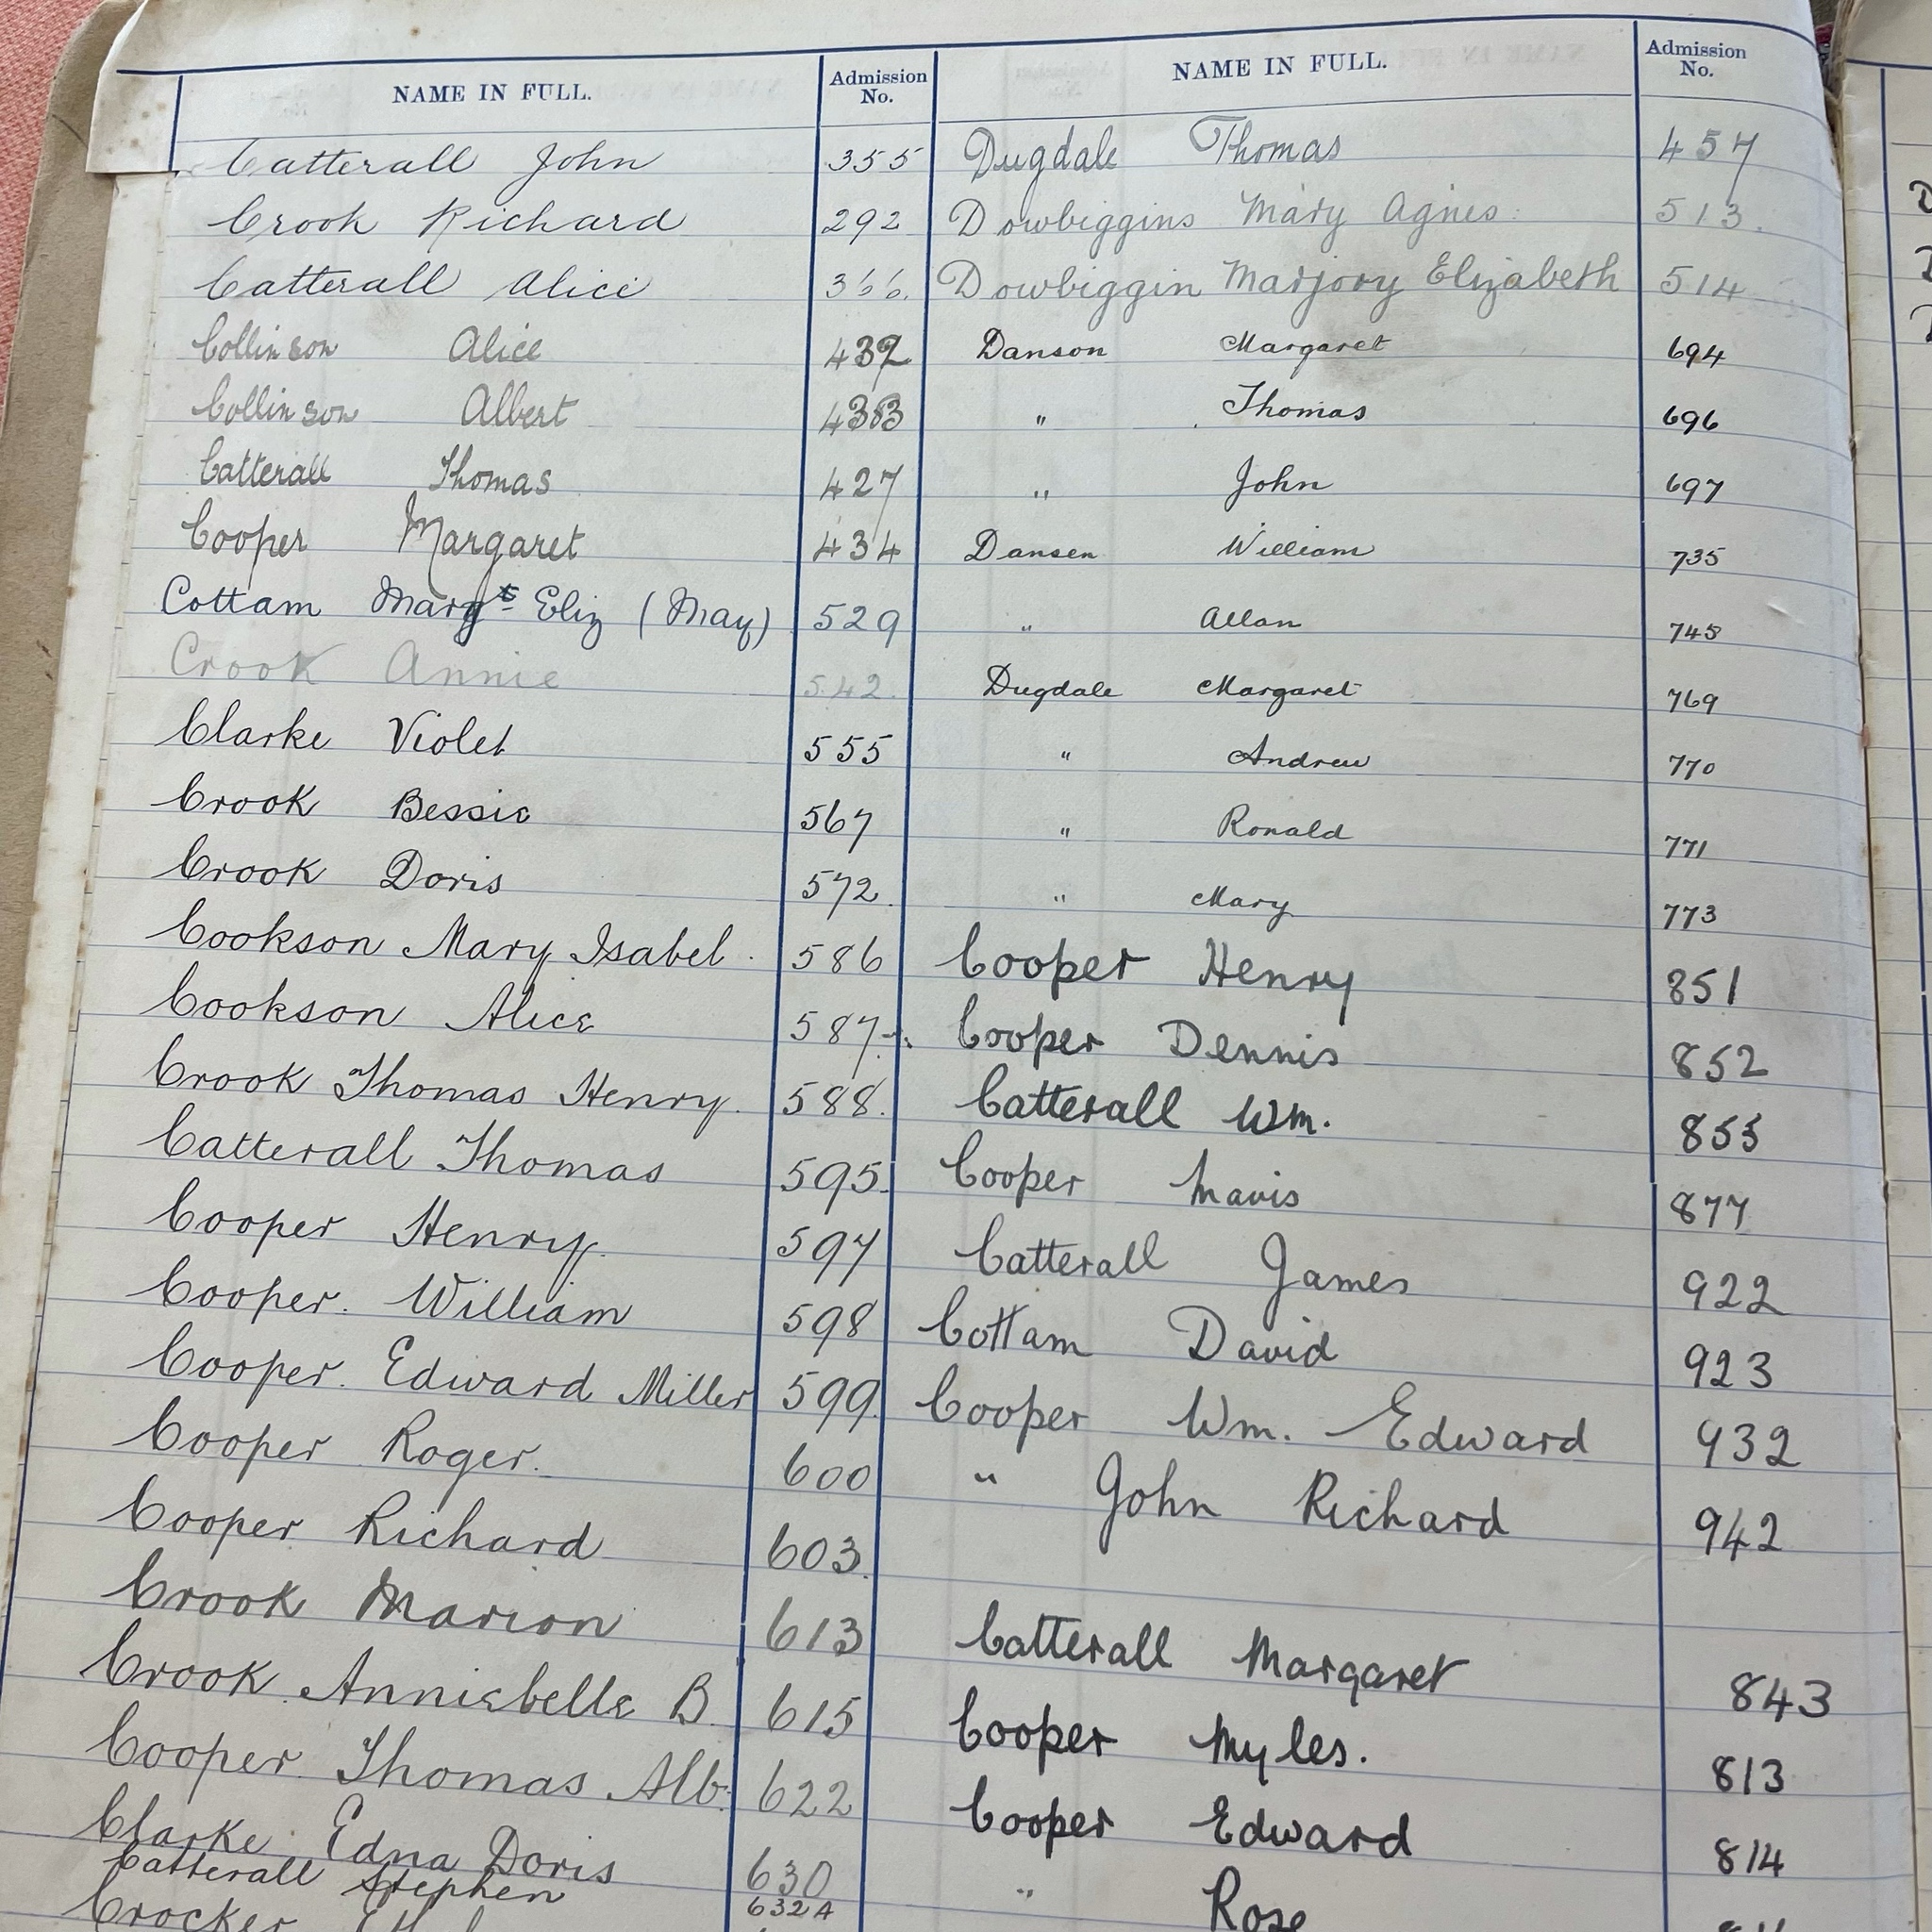 NAME IN FULL.
Admission No.
Catterall John 355
Crook Richard 292
Catterall Alice 366.
Collinson Alice 432
Collinson Albert 433
Catterall Thomas 427
Cooper Margaret 434
Cottam Margt Eliz (May) 529
Crook Annie 542.
Clarke Violet 555
Crook Bessie 567
Crook Doris 572.
Cookson Mary Isabel. 586
Cookson Alice 587.
Crook Thomas Henry. 588.
Catterall Thomas 595.
Cooper Henry. 597
Cooper. William 598
Cooper. Edward Miller 599.
Cooper Roger. 600
Cooper Richard 603.
Crook Marion 613
Crook Anniebelle B. 615
Cooper Thomas Alb. 622
Clarke Edna Doris 630
Catterall Stephen 632A
Crocker
NAME IN FULL.
Admission No.
Dugdale Thomas 457
Dowbiggins Mary Agnes. 513.
Dowbiggin Marjory Elizabeth 514
Danson Margaret 694
" Thomas 696
" John 697
Dansen William 735
" Allan 745
Dugdale Margaret 769
" Andrew 770
" Ronald 771
" Mary 773
Cooper Henry 851
Cooper Dennis 852
Catterall Wm. 855
Cooper Mavis 877
Catterall James 922
Cottam David 923
Cooper Wm. Edward 932
" John Richard 942
Catterall Margaret 843
Cooper Myles. 813
Cooper Edward 814
" Rose